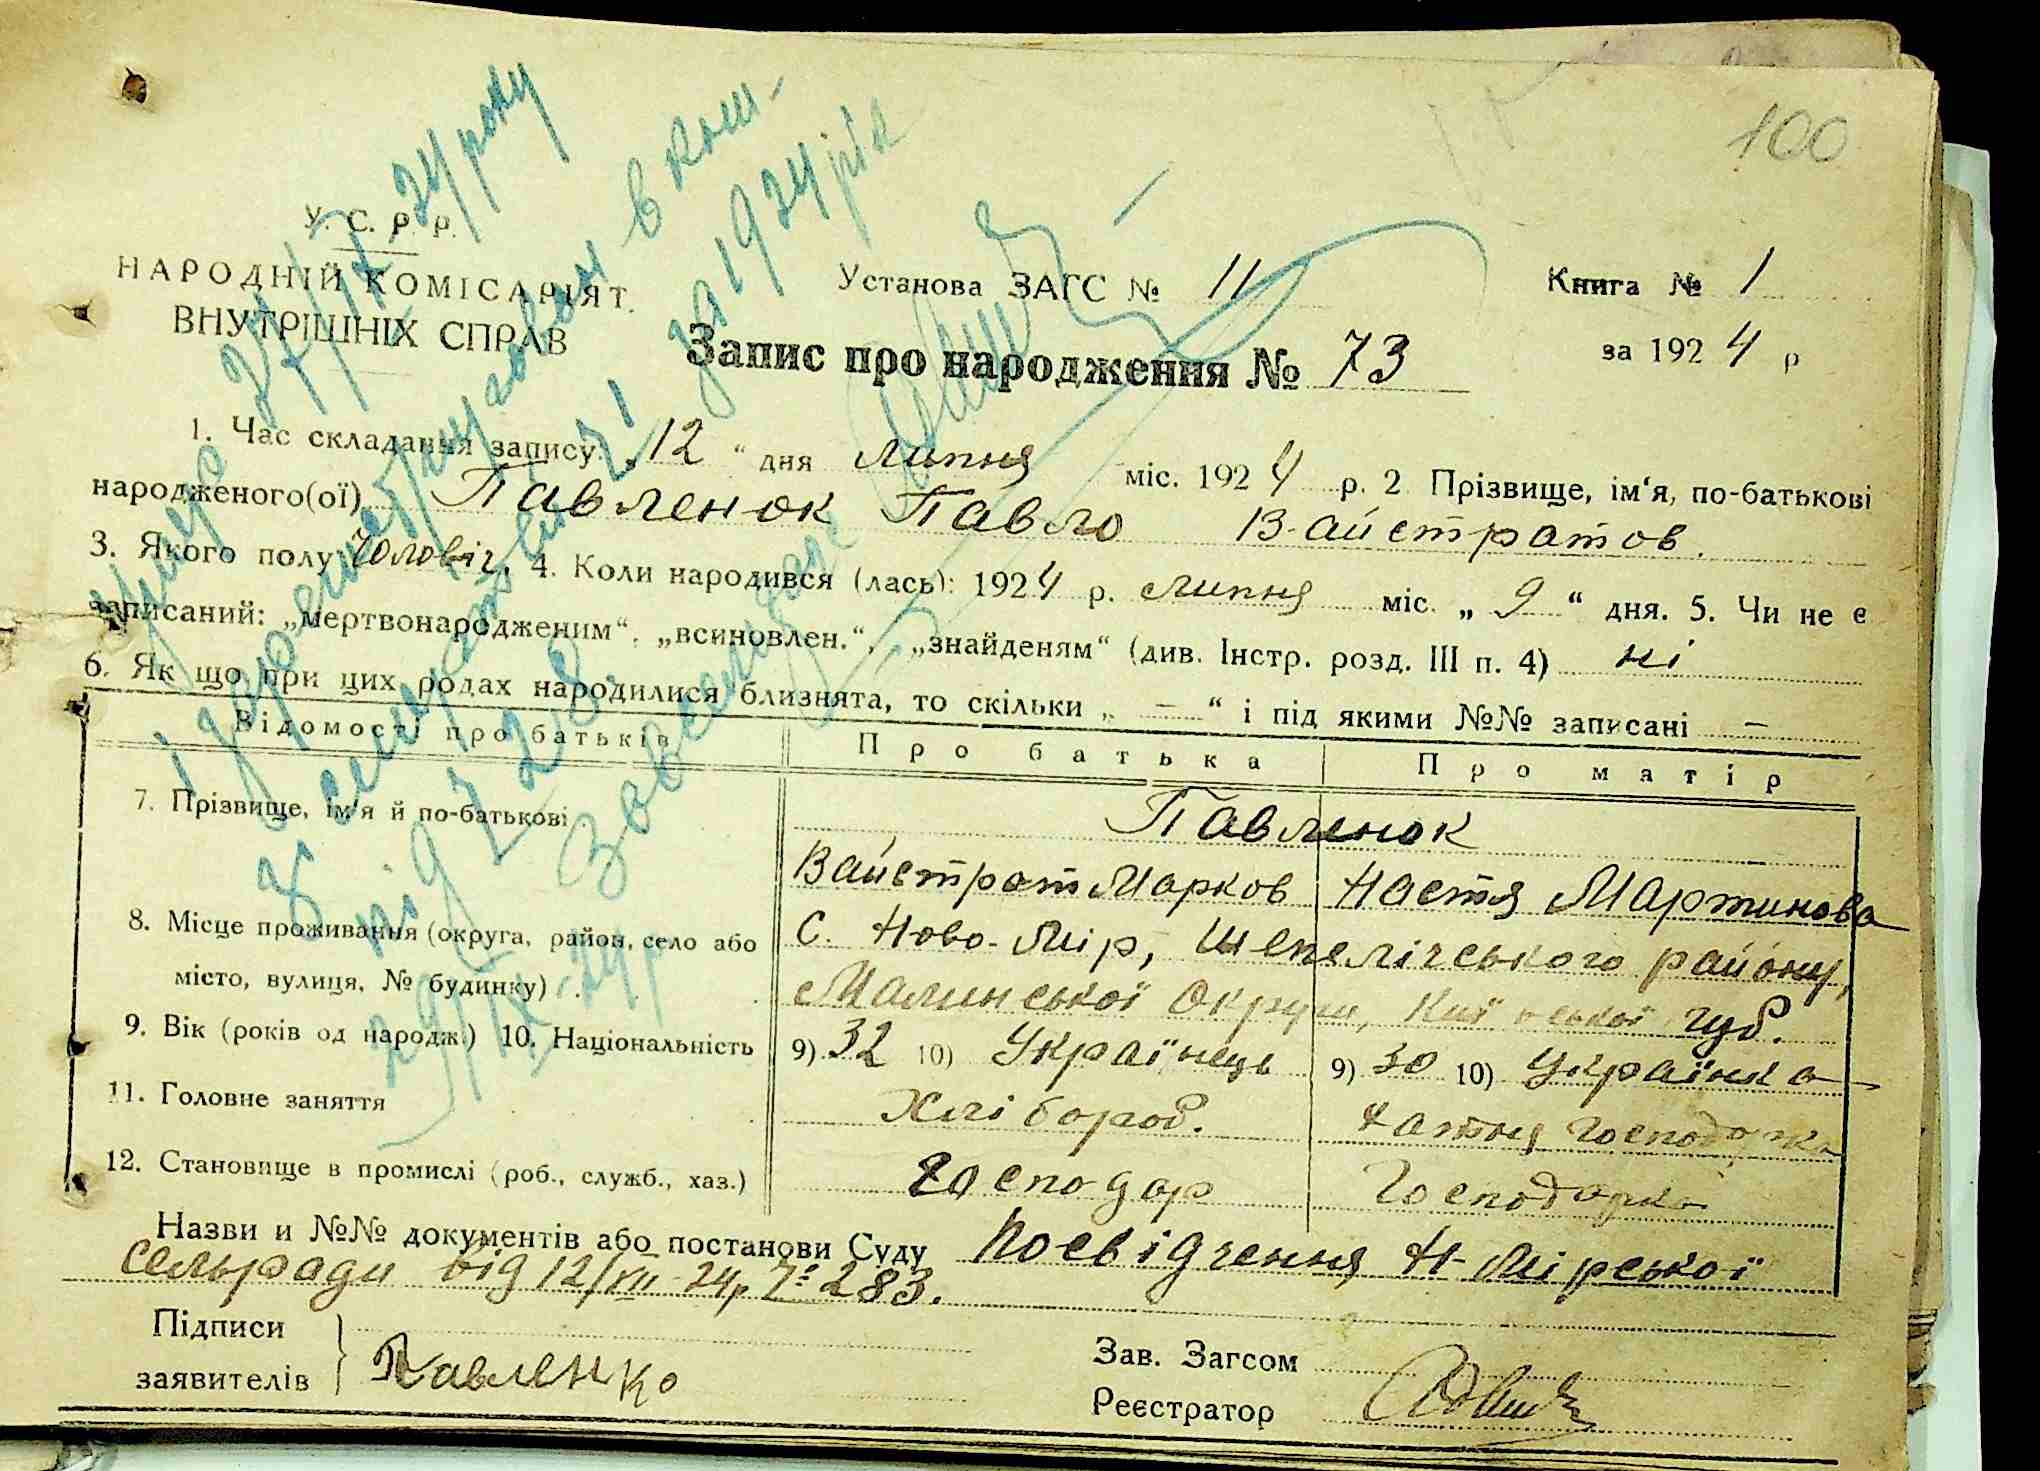 100
У. С. Р. Р.
НАРОДНІЙ КОМІСАРІЯТ
ВНУТРІШНІХ СПРАВ
Установа ЗАГС № 11
Книга № 1
за 1924 р
Запис про народження № 73
1. Час складання запису: „12“ дня липня міс. 1924 р. 2 Прізвище, ім‘я, по-батькові
народженого(ої) Павленок Павло Вайстратов.
3. Якого полу Чоловіч. 4. Коли народився (лась): 1924 р. липня міс. „9“ дня. 5. Чи не є
записаний: „мертвонародженим“, „всиновлен.“, „знайденям“ (див. Інстр. розд. III п. 4) ні
6. Як що при цих родах народилися близнята, то скільки „—“ і під якими №№ записані —
Відомості про батьків Про батька Про матір
7. Прізвище, ім‘я й по-батькові Павленок
Вайстрат Марков Настя Мартинова
8. Місце проживання (округа, район, село або С. Ново-Мір, Шепелічського району,
місто, вулиця, № будинку) Малинської Округи, Київської губ.
9. Вік (років од народж.) 10. Національність 9) 32 10) Українець 9) 30 10) Українка
11. Головне заняття Хлібороб. Хатня господарка
12. Становище в промислі (роб., служб., хаз.) Господар Господарка
Назви и №№ документів або постанови Суду Посвідчення Н-Мірської
сельради від 12/VII-24р № 283.
Підписи
заявителів Павленко
Зав. Загсом
Реєстратор
27/IX-24 року
в кош-
за 1924 рік
29/IX-24р